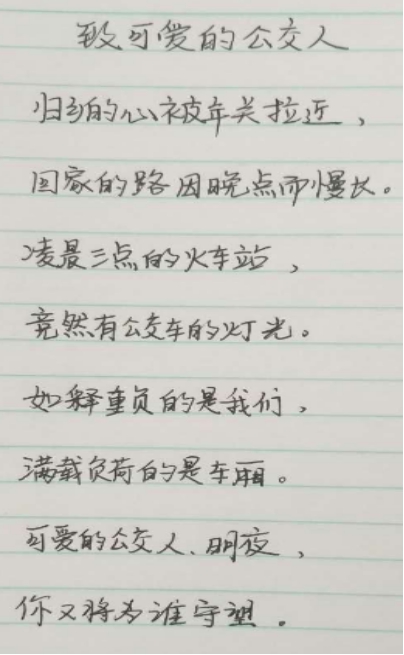 致可爱的公交人
归乡的心被年关拉近，
回家的路因晚点而慢长。
凌晨三点的火车站，
竟然有公交车的灯光。
如释重负的是我们，
满载负荷的是车厢。
可爱的公交人、明夜，
你又将为谁守望。